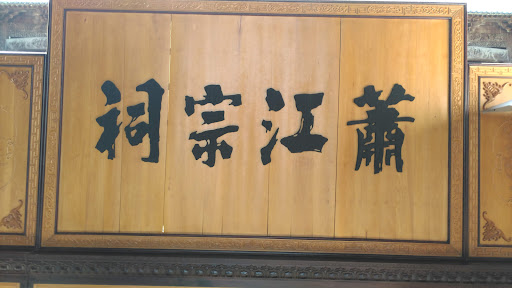 蕭江宗祠